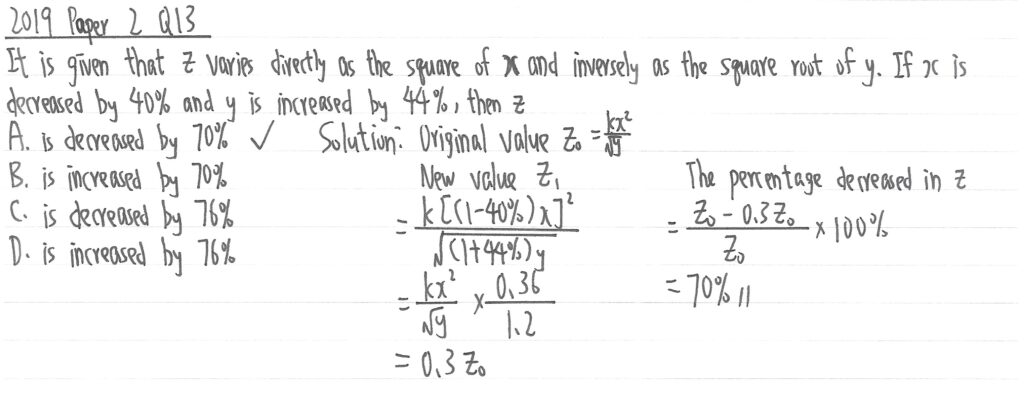 2019 Paper 2 Q13
It is given that z varies directly as the square of x and inversely as the square root of y. If x is
decreased by 40% and y is increased by 44%, then z
A. is decreased by 70% ✓
B. is increased by 70%
C. is decreased by 76%
D. is increased by 76%
Solution: Original value z₀ = kx²/√y
New value z₁
= k[(1-40%)x]²/√(1+44%)y
= kx²/√y × 0.36/1.2
= 0.3 z₀
The percentage decreased in z
= z₀ - 0.3z₀/z₀ × 100%
= 70% //